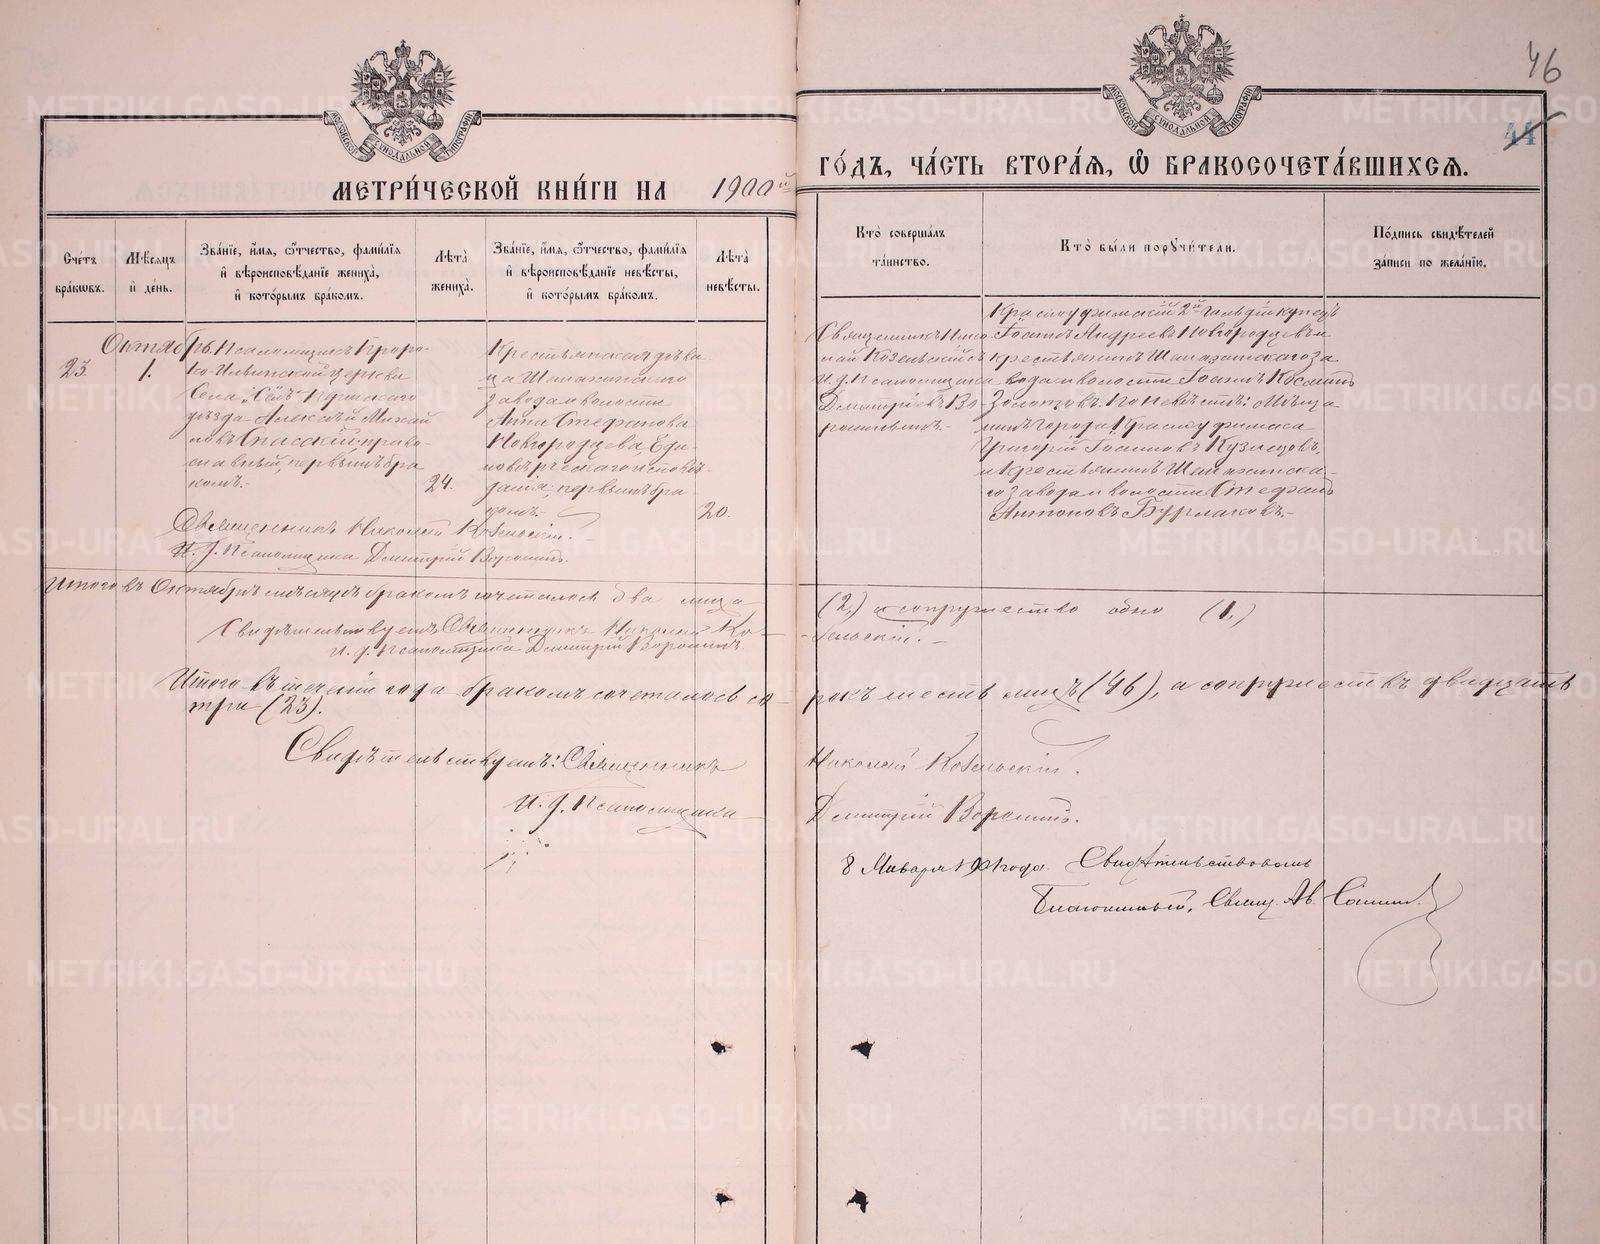 46
44
МОСКОВСКОЙ СѴНОДАЛЬНОЙ ТИПОГРАФІИ
МОСКОВСКОЙ СѴНОДАЛЬНОЙ ТИПОГРАФІИ
МЕТРИ́ЧЕСКОЙ КНИ́ГИ НА 1900й
ГО́ДЪ, ЧА́СТЬ ВТОРА́Я, Ѡ БРАКОСОЧЕТА́ВШИХСЯ.
Сче́тъ бра́кωвъ.
Мѣ́сяцъ и҆ де́нь.
Зва́нїе, и҆́мя, ѻ҆́тчество, фами́лїя
и҆ вѣроисповѣ́данїе жениха̀,
и҆ кото́рымъ бра́комъ.
Лѣ́та жениха̀.
Зва́нїе, и҆́мя, ѻ҆́тчество, фами́лїя
и҆ вѣроисповѣ́данїе невѣ́сты,
и҆ кото́рымъ бра́комъ.
Лѣ́та невѣ́сты.
Кто̀ соверша́лъ
та́инство.
Кто̀ бы́ли порꙋчи́тели.
По́дпись свидѣ́телей
за́писи по жела́нїю.
Октябрь
23.
1.
Псаломщикъ Проро-
ко-Ильинской церкви
Села
уѣзда Алексѣй Михай
ловъ Спасскій, право-
славный, первымъ бра
комъ.-
24.
Крестьянская дѣви
ца Шемахинскаго
завода и волости
Анна Стефанова
Новгородцева, Еди-
новѣрческаго исповѣ-
данія, первымъ бра-
комъ.-
20.
Священникъ Нико
лай Козельскій съ
И. д. Псаломщика
Димитріемъ Во-
ронинымъ.-
Красноуфимскій 2й гильдіи купецъ
Іоаннъ Андреевъ Новгородцевъ и
крестьянинъ Шемахинскаго за
вода и волости Іоаннъ
Золотовъ. По невѣстѣ: Мѣща
нинъ города Красноуфимска
Григорій Іоанновъ Кузнецовъ,
и Крестьянинъ Шемахинска-
го завода и волости Стефанъ
Антоновъ Бурмаковъ.-
Священникъ Николай Козельскій.-
И. д. Псаломщика Димитрій Воронинъ.
Итого въ Октябрѣ мѣсяцѣ бракомъ сочеталось два лица (2,) а супружество одно (1,)
Свидѣтельствуетъ Священникъ Николай Козельскій.-
И. д. Псаломщика Димитрій Воронинъ.
Итого въ теченіи года бракомъ сочеталось со-рокъ шесть лицъ (46), а супружествъ двадцать
три (23).
Свидѣтельствуетъ: Священникъ Николай Козельскій.
И. д. Псаломщика Димитрій Воронинъ.
8 Января 1901 года. Свидѣтельствовалъ
Благочинный, Свящ. Ав.
METRIKI.GASO-URAL.RU